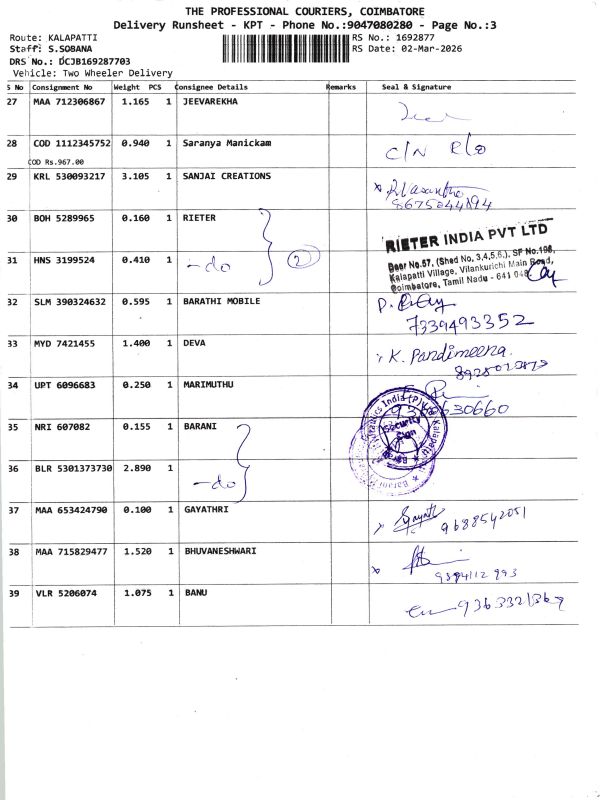 THE PROFESSIONAL COURIERS, COIMBATORE
Delivery Runsheet - KPT - Phone No.:9047080280 - Page No.:3
Route: KALAPATTI RS No.: 1692877
Staff: S.SOBANA RS Date: 02-Mar-2026
DRS No.: DCJB169287703
Vehicle: Two Wheeler Delivery
S No Consignment No Weight PCS Consignee Details Remarks Seal & Signature
27 MAA 712306867 1.165 1 JEEVAREKHA
28 COD 1112345752 0.940 1 Saranya Manickam C/N R/O
COD Rs.967.00
29 KRL 530093217 3.105 1 SANJAI CREATIONS
8675044894
30 BOH 5289965 0.160 1 RIETER
RIETER INDIA PVT LTD
31 HNS 3199524 0.410 1 -do 2
Door No.57, (Shed No. 3,4,5,6,), SF No.198,
Kalapatti Village, Vilankurichi Main Road,
Coimbatore, Tamil Nadu - 641 048.
32 SLM 390324632 0.595 1 BARATHI MOBILE
7339493352
33 MYD 7421455 1.400 1 DEVA K. Pandimeena
34 UPT 6096683 0.250 1 MARIMUTHU
630660
35 NRI 607082 0.155 1 BARANI
Security
Sign
36 BLR 5301373730 2.890 1 -do
37 MAA 653424790 0.100 1 GAYATHRI
9688542051
38 MAA 715829477 1.520 1 BHUVANESHWARI
9394112993
39 VLR 5206074 1.075 1 BANU